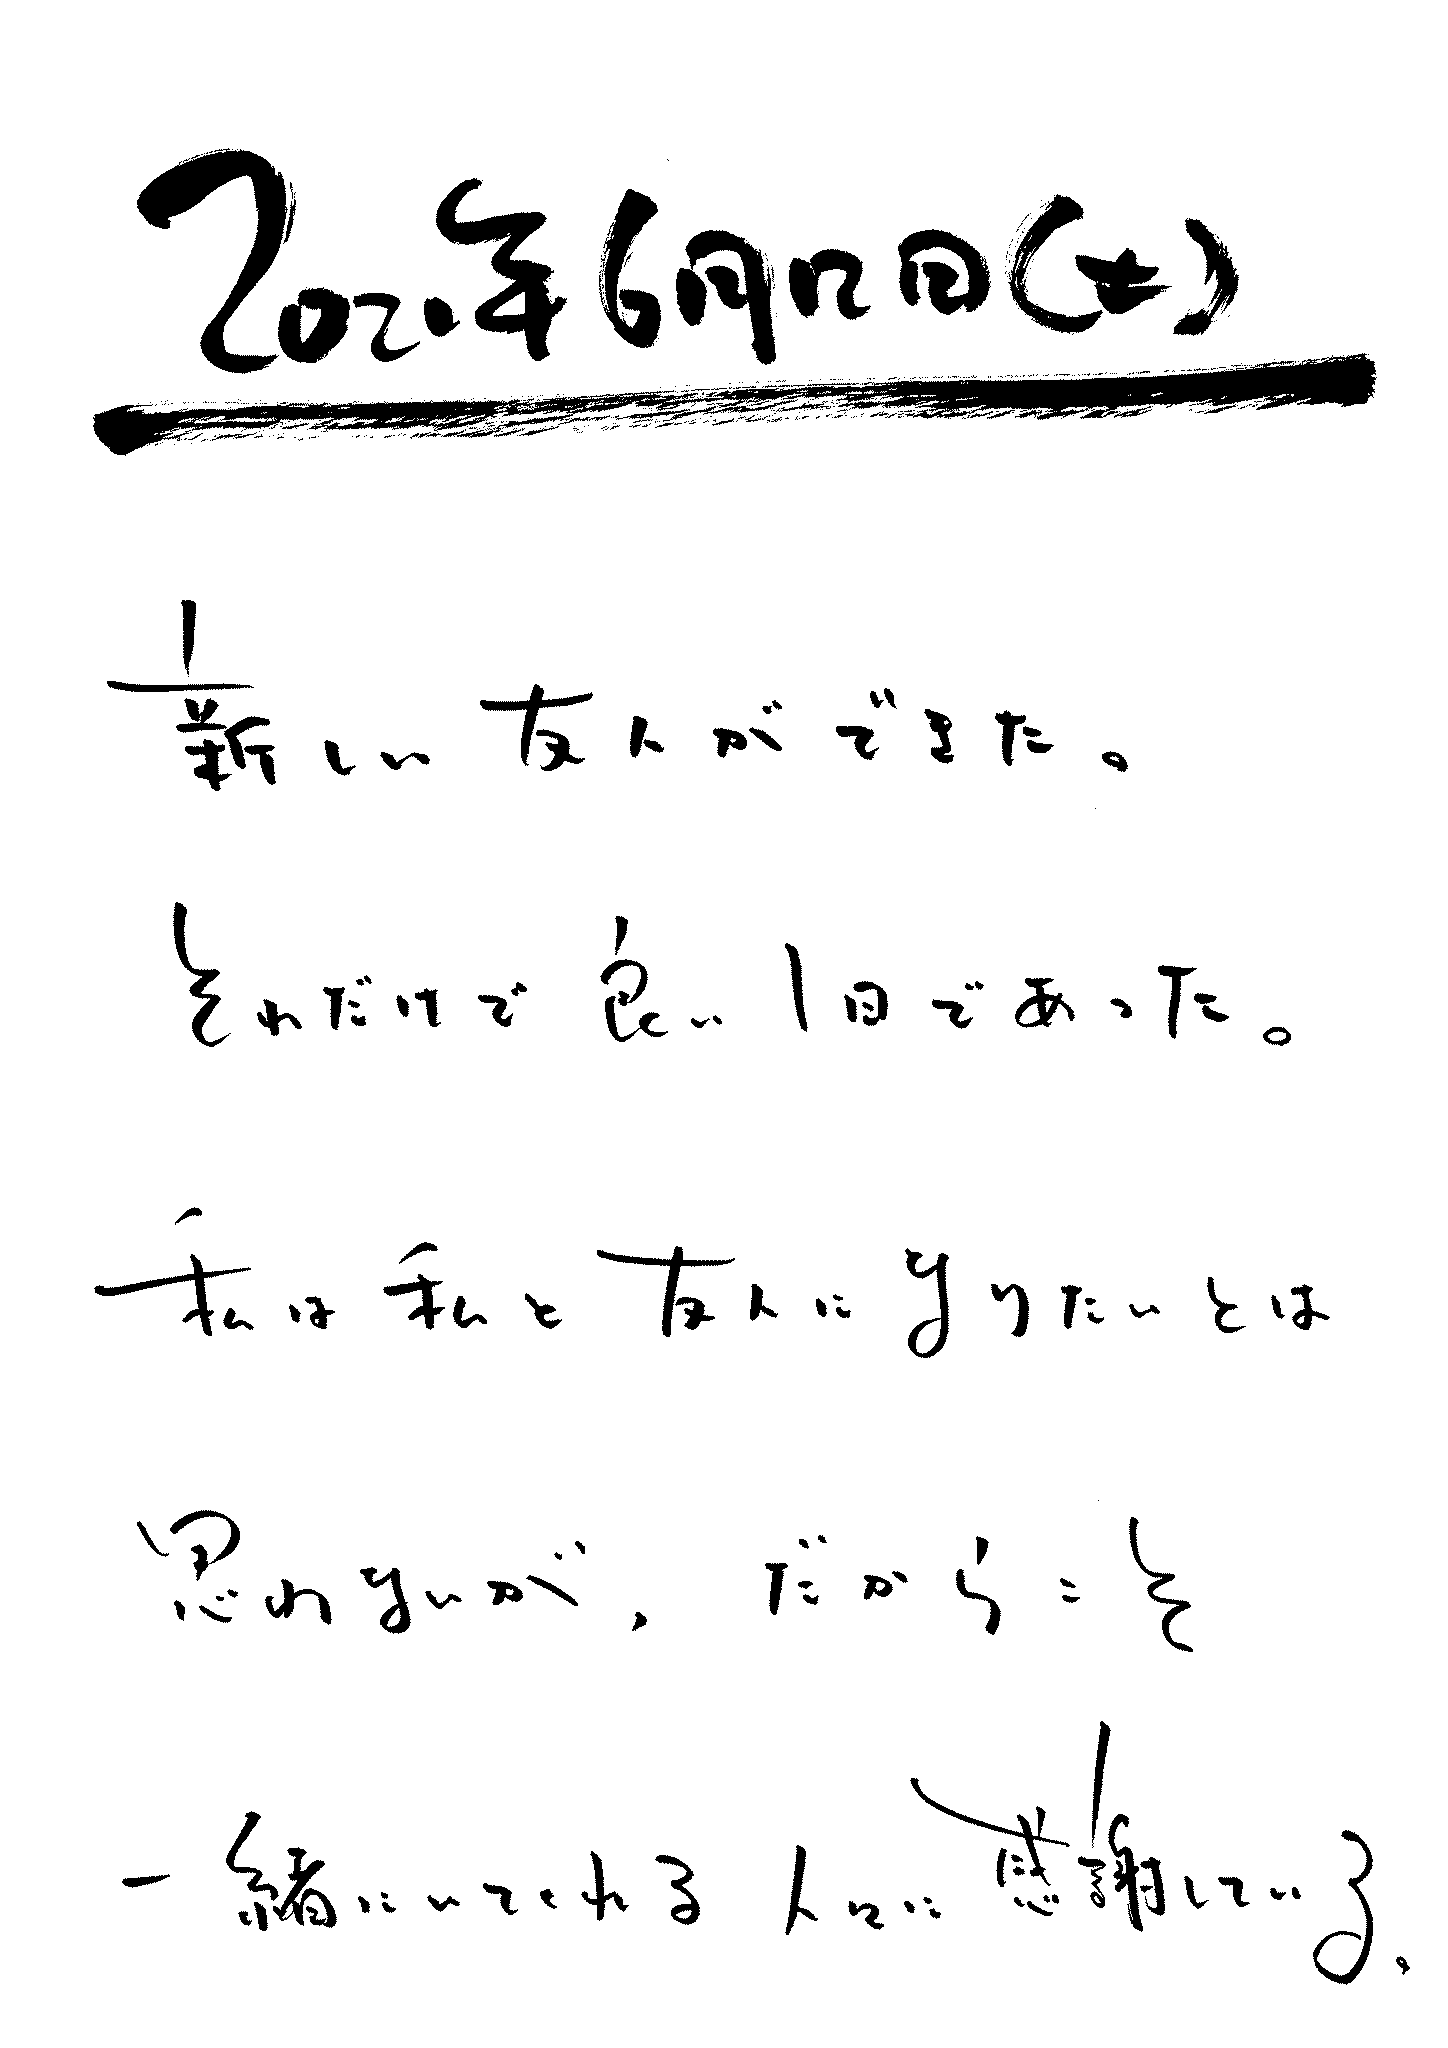 2021年6月12日(土)
新しい友人ができた。
それだけで良い1日であった。
私は私と友人になりたいとは
思わないが、だからこそ
一緒にいてくれる人々に感謝している。